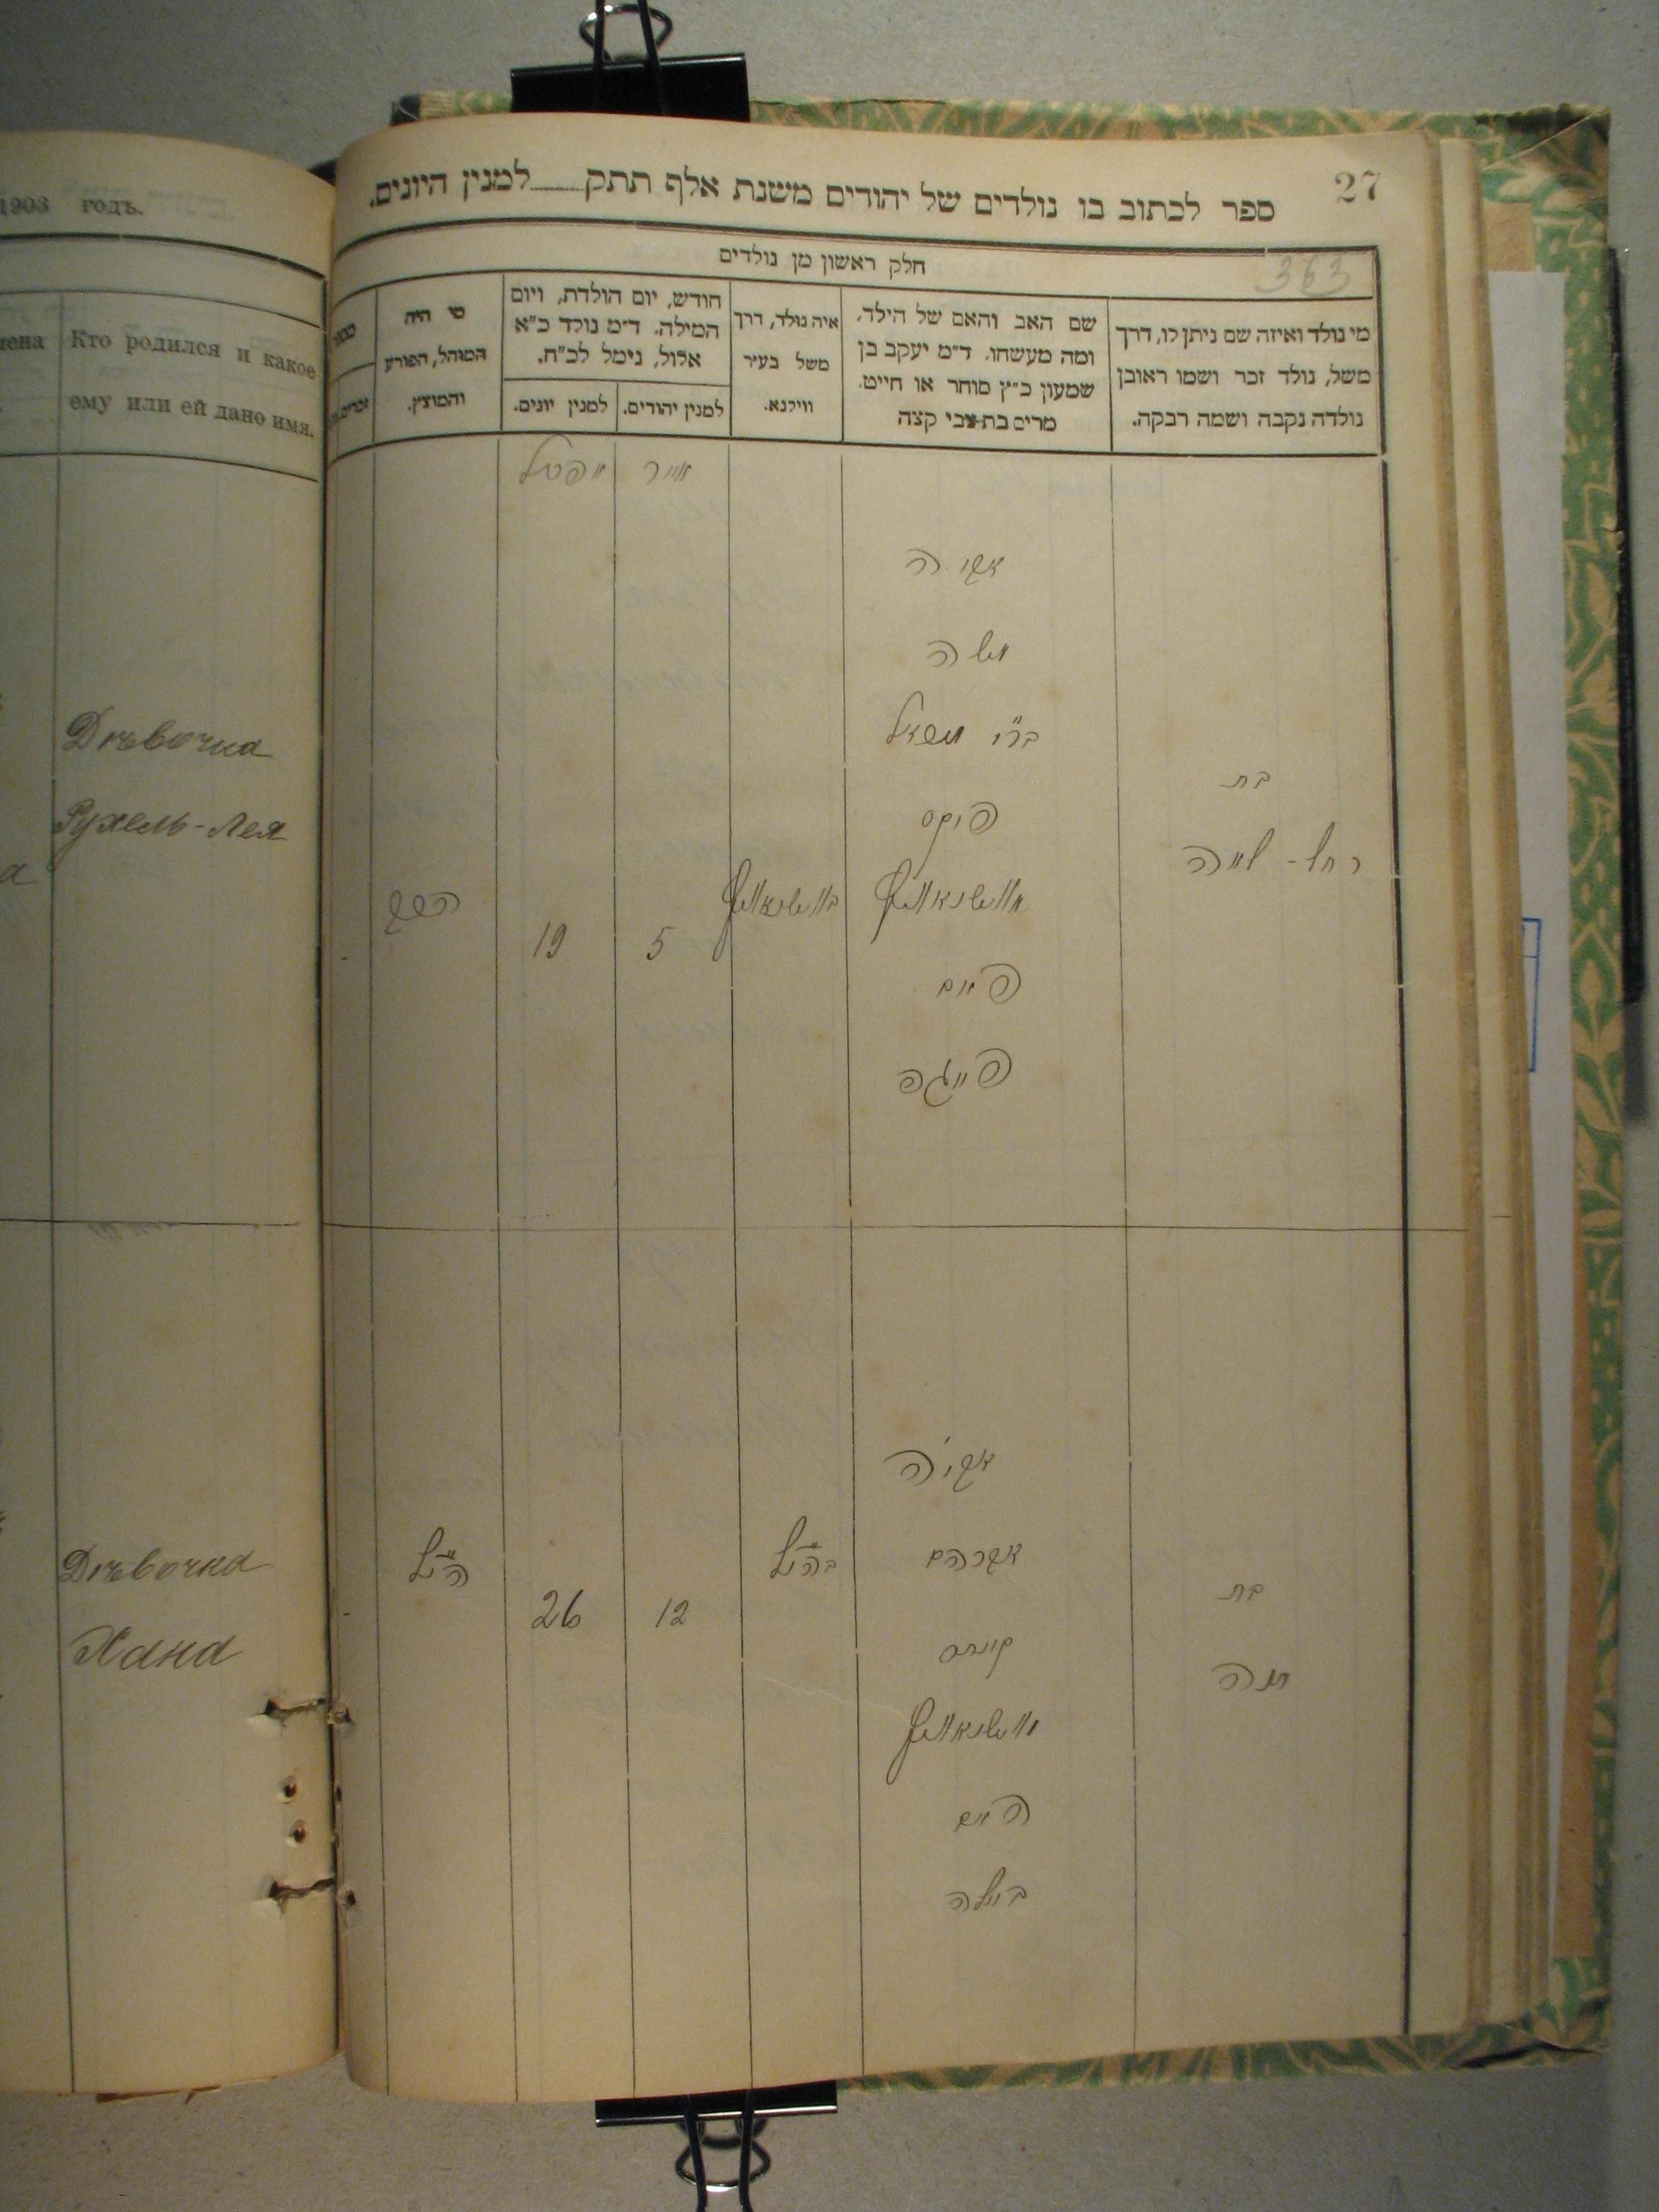 1903 годъ.
Кто родился и какое
ему или ей дано имя.
Дѣвочка
Рухель-Лея
Дѣвочка
Хана
27
ספר לכתוב בו נולדים של יהודים משנת אלף תתק למנין היונים.
363
חלק ראשון מן נולדים
מי נולד ואיזה שם ניתן לו, דרך
משל, נולד זכר ושמו ראובן
נולדה נקבה ושמה רבקה.
שם האב והאם של הילד,
ומה מעשהו. ד״מ יעקב בן
שמעון כ״ץ סוחר או חייט,
מרים בת צבי קצה
איה נולד, דרך
משל בעיר
ווילנא.
חודש, יום הולדת, ויום
המילה. ד״מ נולד כ״א
אלול, נימל לכ״ח.
למנין יהודים.
למנין יונים.
מי היה
המוהל, הפורע
והמוצץ.
אייר
אביה
משה
בת
רחל - לאה
5
19
הרב
חיים
פייגא
אביה
אברהם
בת
חנה
12
26
הנ״ל
בהנ״ל
ביילה